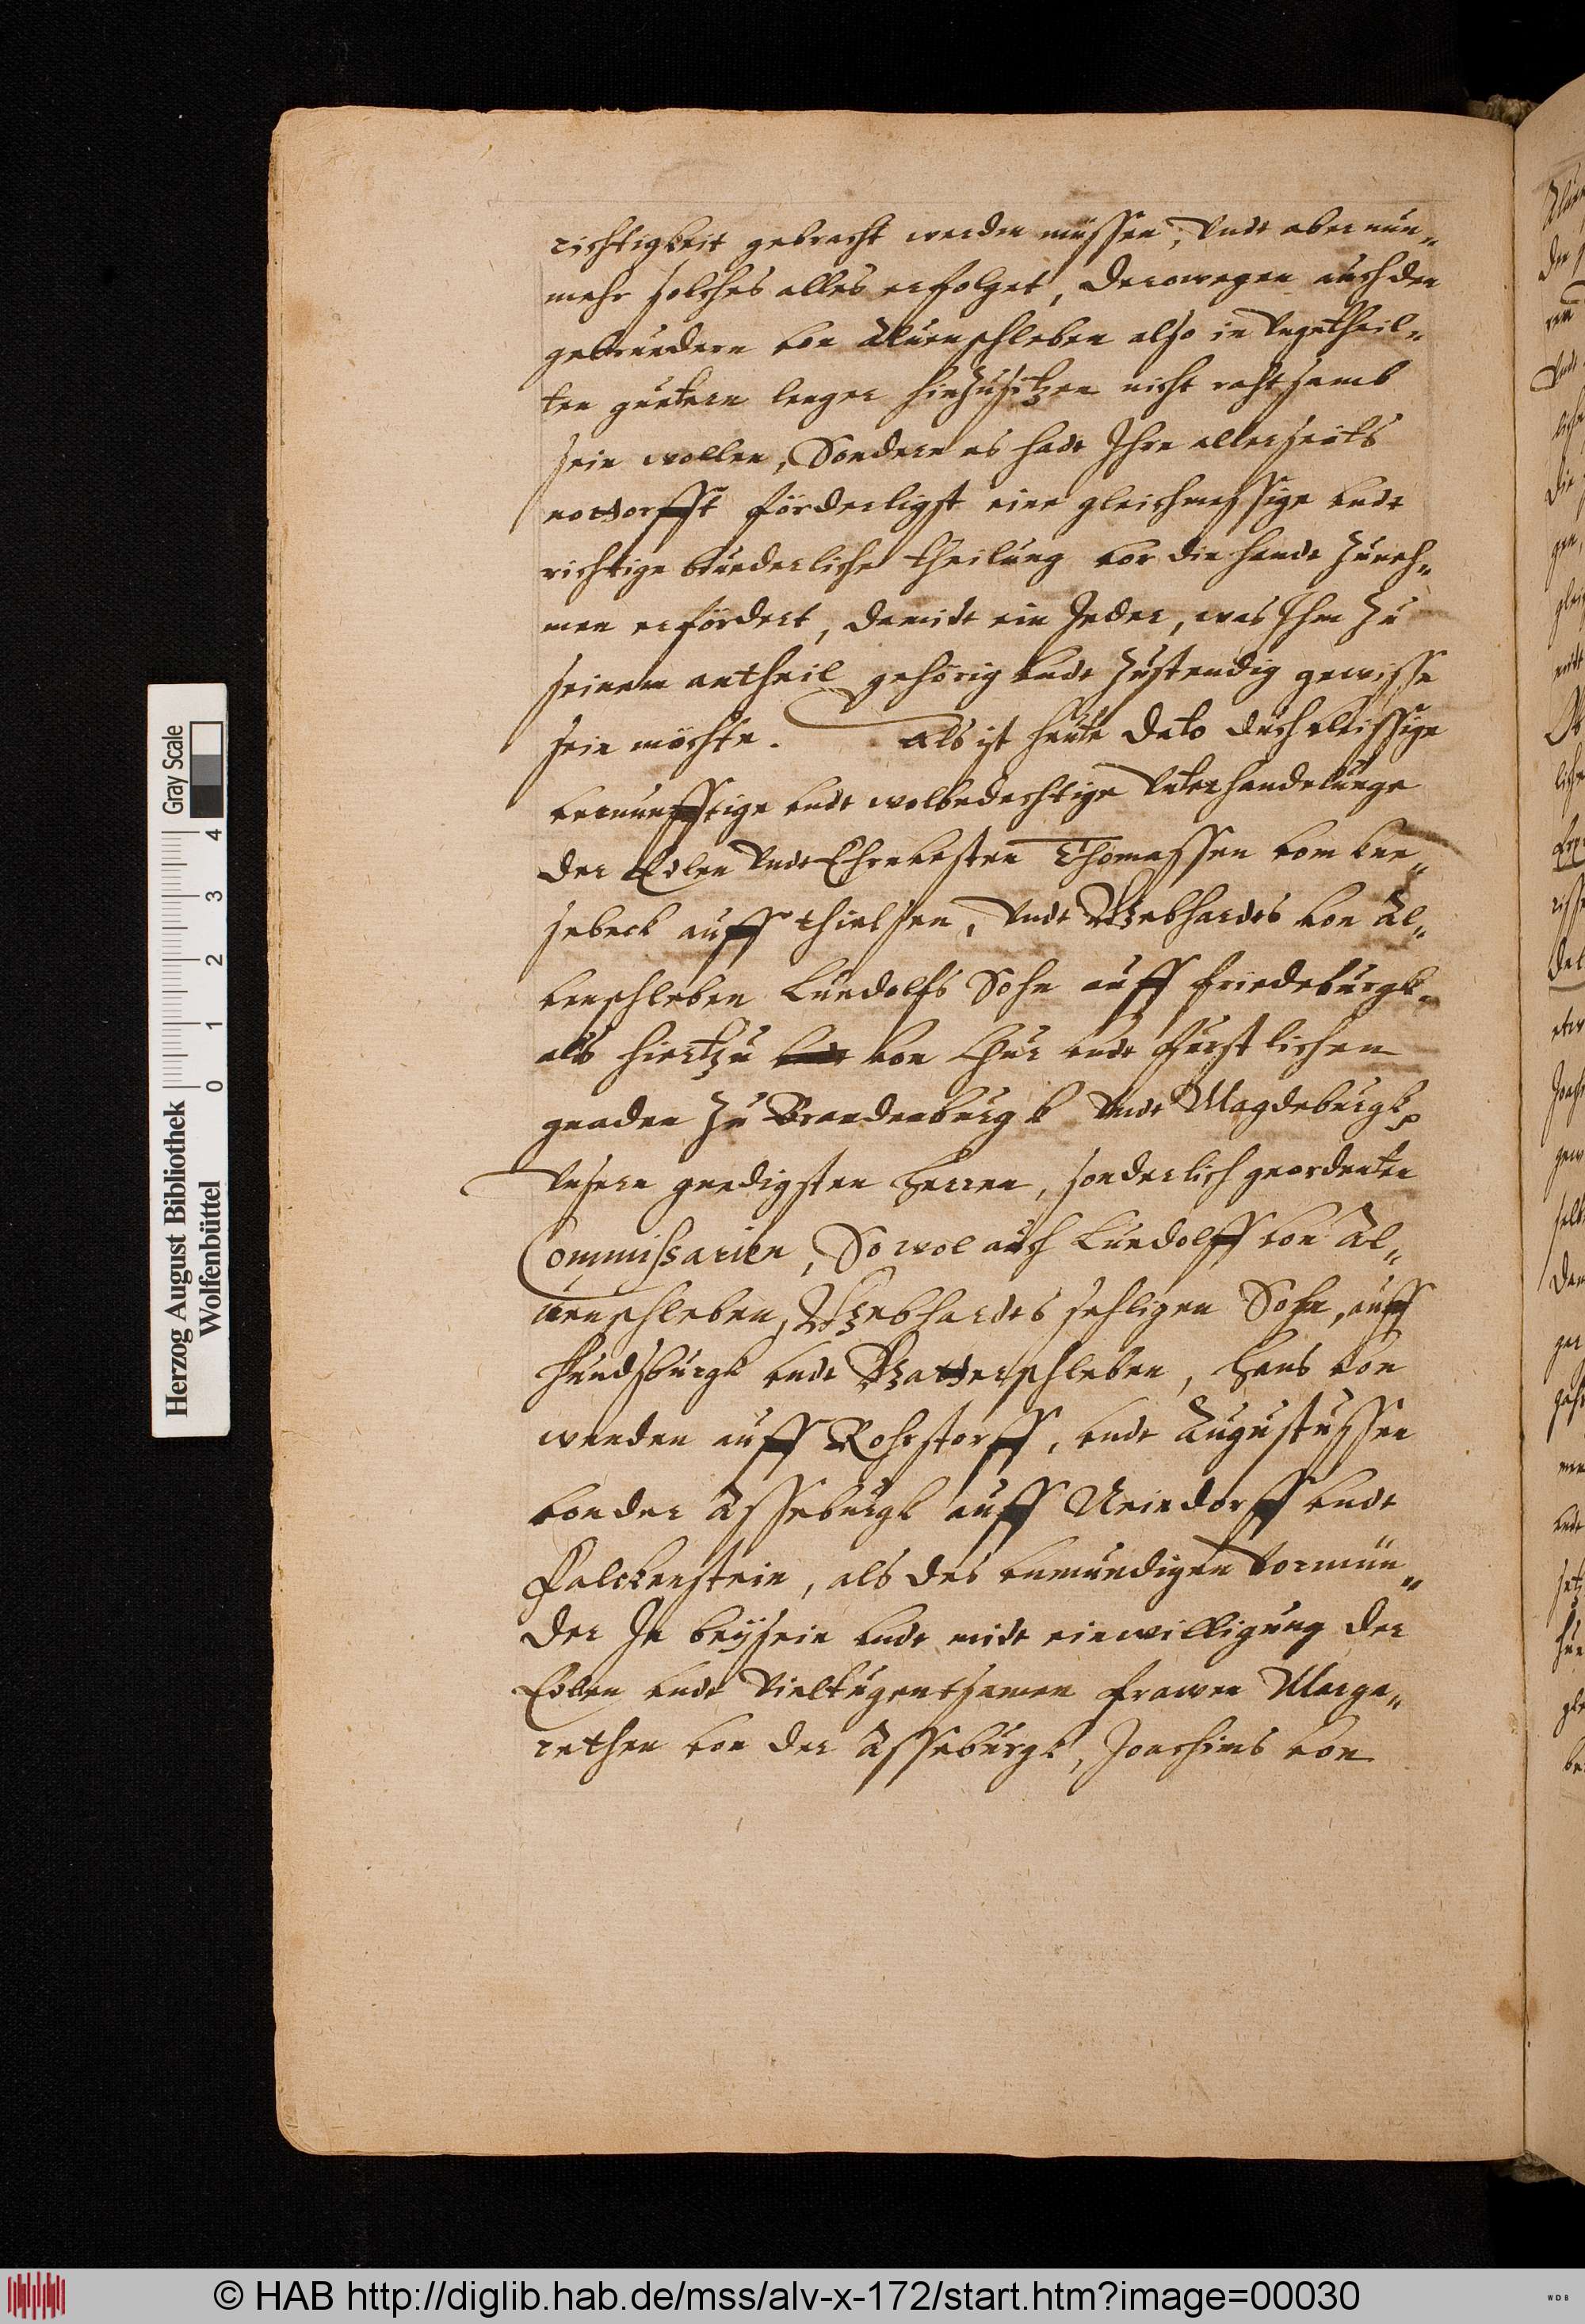 richtigkeit gebracht werden müssen, Vndt aber nun„
mehr solches alles erfolget, derowegen auch den
gebruedern von Aluenschleben also in Vngetheil„
ten guetern lenger hinzusitzen nicht rahtsamb
sein wollen, Sondern es hadt Ihre allerseits
nottorfft förderligst eine gleichmessige vndt
richtige bruederliche theilung vor die handt zuneh„
men erfördert, damidt ein Jeder, was Ihm zu
seinem antheil gehörig vndt zustendig gewisse
sein möchte. Als ist heute dato durch vleissige
vernunfftige vndt wolbedechtige Vnterhandelunge
der Edlen Vndt Ehrnvesten Thomassen vom Kne„
sebeck auff thielsen, Vndt Gebhardts von Al„
venschleben Luedolfs Sohn auff friedeburgk
als hiertzu von Chur vndt furstlichen
gnaden zu Brandenburgk Vndt Magdeburgk
Vnsern gnedigsten herren, sonderlich geordenten
Commissarien, So wol auch Luedolff von Al„
uenschleben, Gebhardts sehligen Sohn, auff
Hundsburgk vndt Gatterschleben, Hans von
wenden auff Rohrstorff, vndt Augustussen
von der Asseburgk auff Neindorff vndt
Falckenstein, als des vnmundigen Vormün„
der In beysein vndt midt einwilligung der
Edlen vndt Vieltugentsamen frawen Marga„
rethen von der Asseburgk, Joachims von
Herzog August Bibliothek
Wolfenbüttel
0 1 2 3 4
Gray Scale
© HAB http://diglib.hab.de/mss/alv-x-172/start.htm?image=00030
WDB